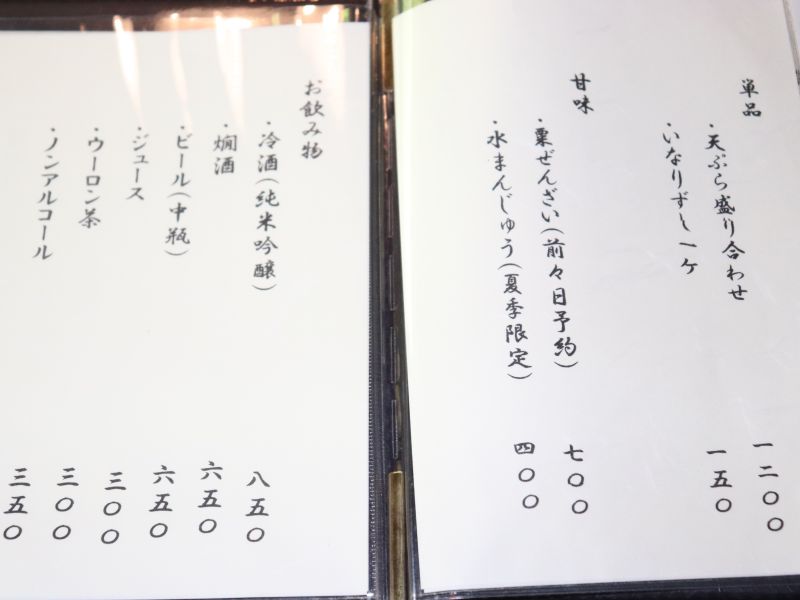 単品
・天ぷら盛り合わせ 一二〇〇
・いなりずし一ヶ 一五〇
甘味
・粟ぜんざい(前々日予約) 七〇〇
・水まんじゅう(夏季限定) 四〇〇
お飲み物
・冷酒(純米吟醸) 八五〇
燗酒 六五〇
・ビール(中瓶) 六五〇
・ジュース 三〇〇
・ウーロン茶 三〇〇
・ノンアルコール 三五〇